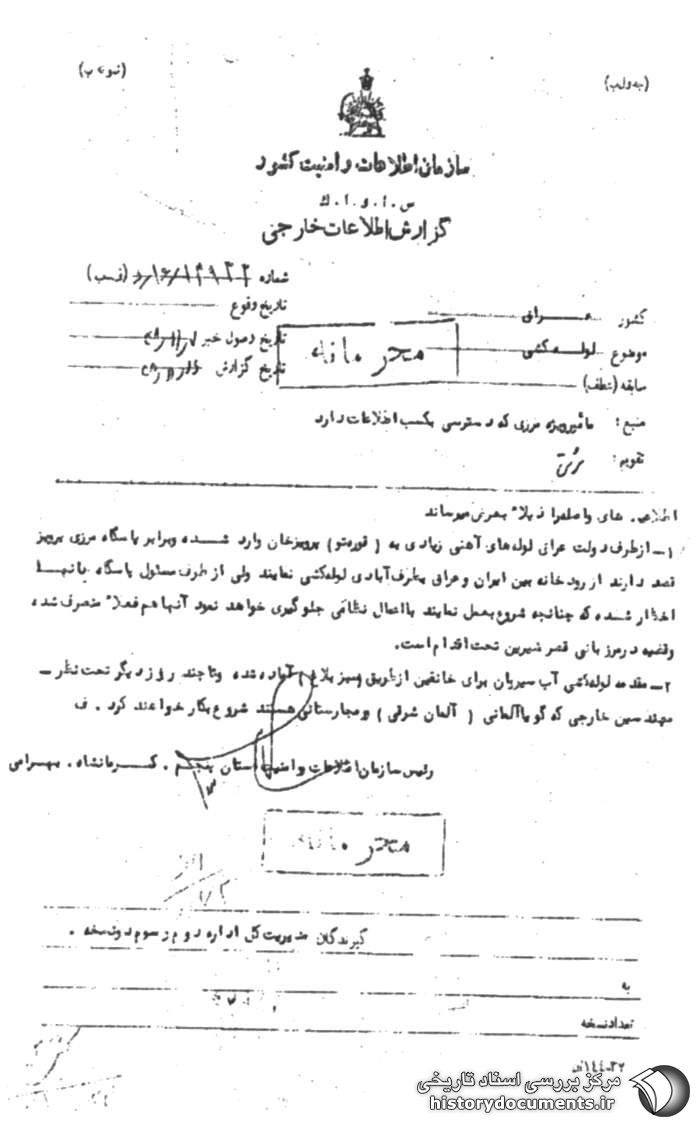 (جدولب)
(نمونه ب)
سازمان اطلاعات و امنیت کشور
س . ا . و . ا . ك
گزارش اطلاعات خارجی
شماره (قسب)
کشور عراق
تاریخ وقوع
موضوع لوله کشی
تاریخ وصول خبر
محرمانه
سابقه (عطف)
تاریخ گزارش
منبع : مامور ویژه مرزی که دسترسی بکسب اطلاعات دارد
تقویم :
های واصله را ذیلا" بعرض میرساند
۱ ــ از طرف دولت عراق لوله‌های آهنی زیادی به ( قوره‌تو ) پرویزخان وارد شده و برابر پاسگاه مرزی پرویز
قصد دارند از رودخانه بین ایران و عراق بطرف آبادی لوله‌کشی نمایند ولی از طرف مسئول پاسگاه بآنها
اخطار شده که چنانچه شروع بعمل نمایند با اعمال نظامی جلوگیری خواهد نمود آنها هم فعلا" منصرف شده
وقضیه در مرزبانی قصر شیرین تحت اقدام است.
۲ ــ مقدمه لوله‌کشی آب سیروان برای خانقین از طریق آماده شده وتا چند روز دیگر تحت نظر ــ
مهندسین خارجی که گویا آلمانی ( آلمان شرقی ) و مجارستانی هستند شروع بکار خواهند کرد . ف
رئیس سازمان اطلاعات و امنیت استان پنجم . کرمانشاه . بهرامی
محرمانه
گیرندگان مدیریت کل اداره دوم و سوم دونسخه .
به
تعداد نسخه
مرکز بررسی اسناد تاریخی
historydocuments.ir